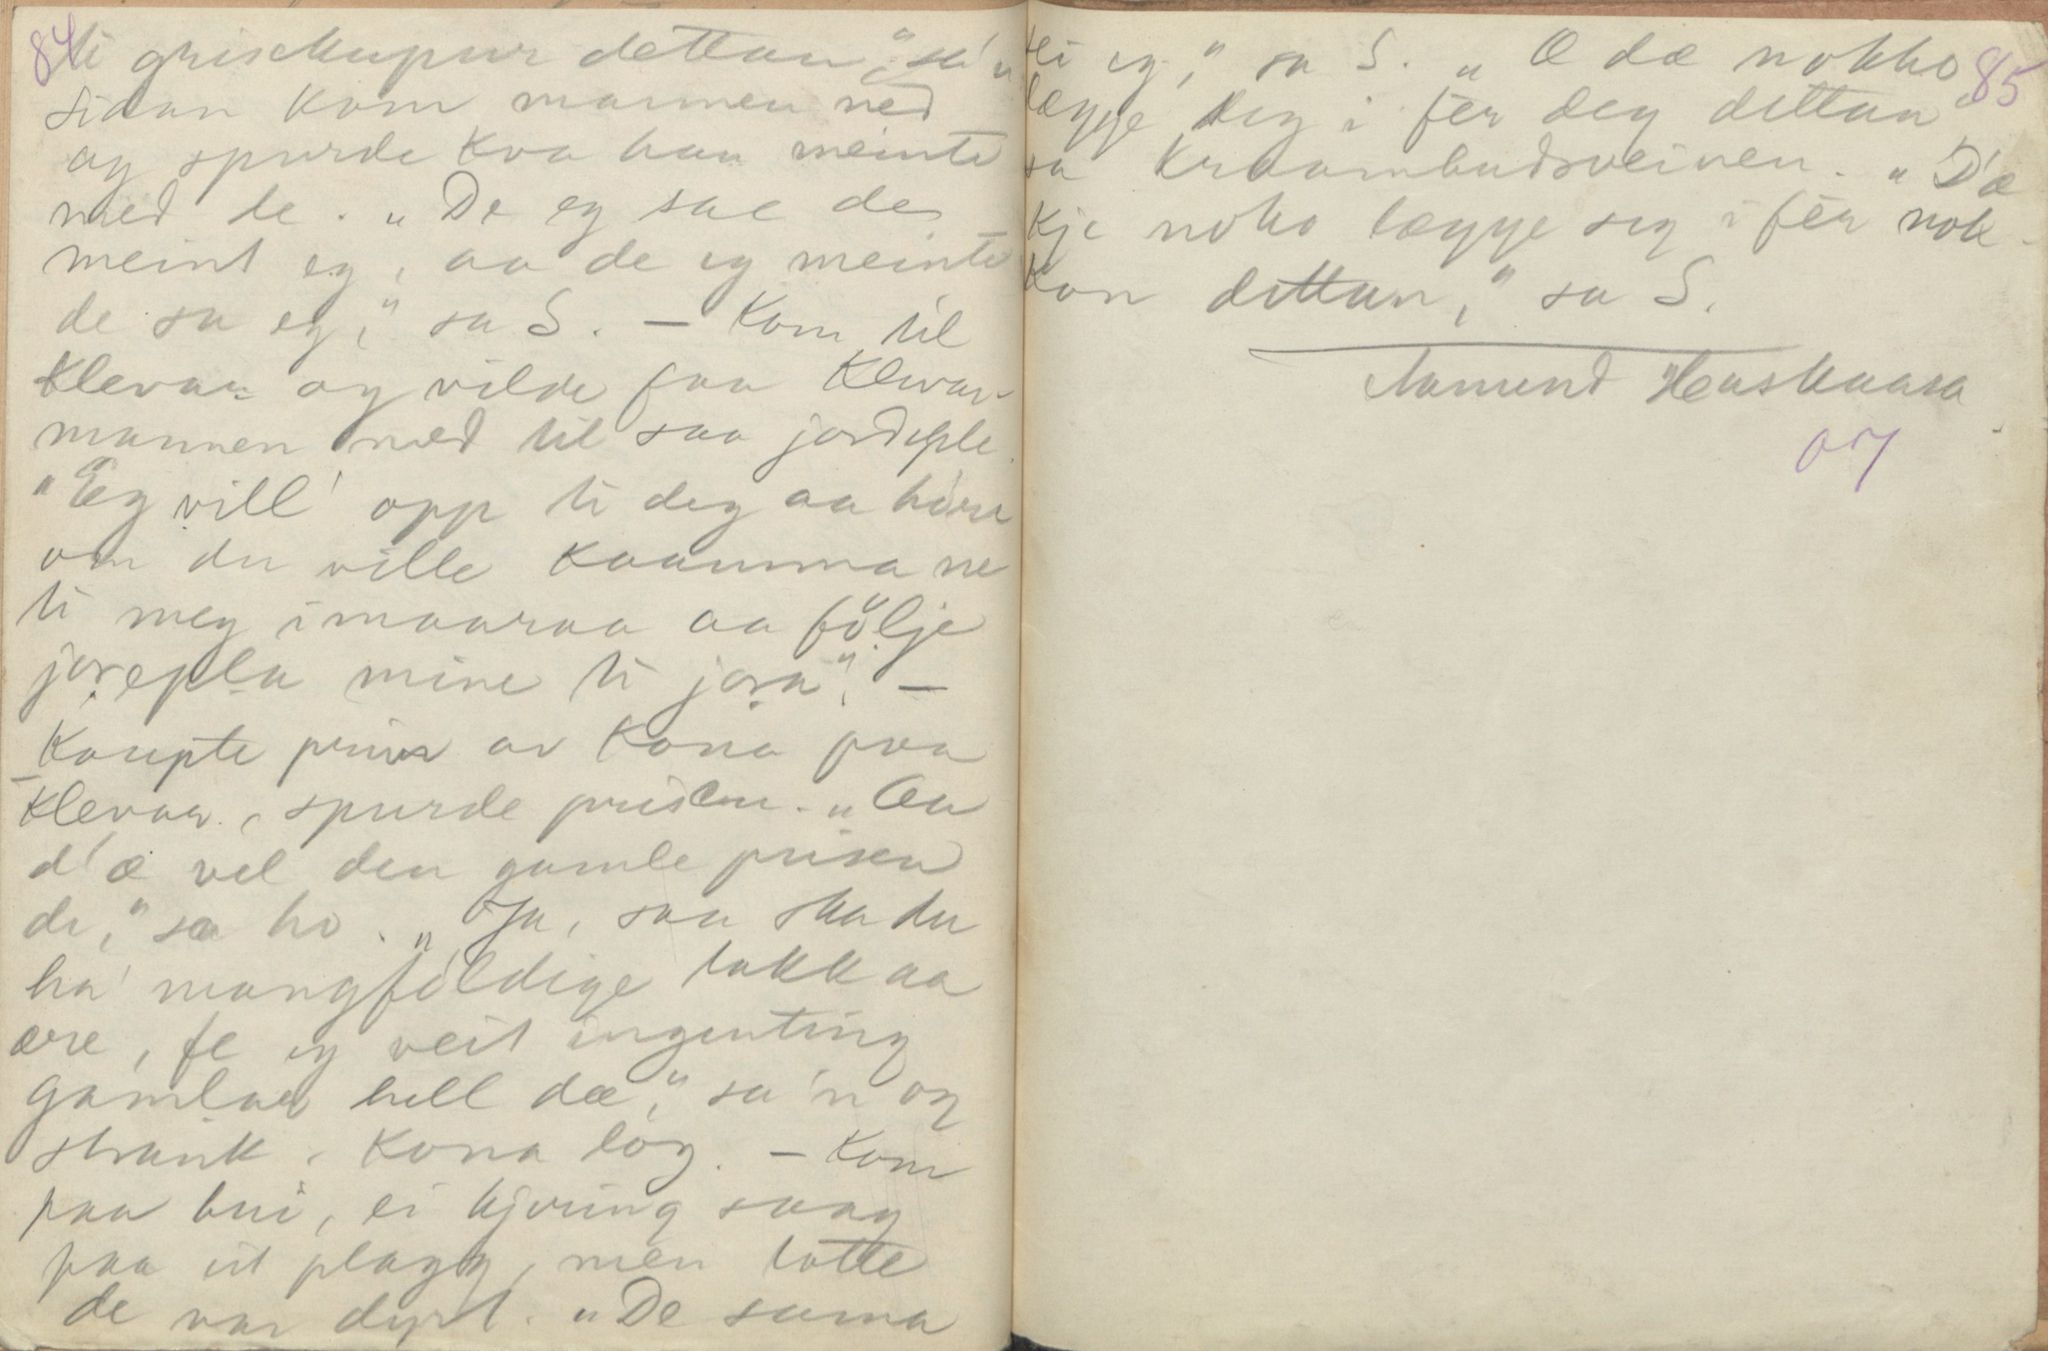 84
ti grisekupur dettan," sa'n
sidan kom mannen ned
og spurde kva han meinte
med de. „De eg sae de
meint eg, aa de eg meinte
de sa eg," sa S. – Kom til
Klevar og vilde faa Klevar-
mannen med til saa jordeple.
"Eg vill' opp ti deg aa høre
om du ville kaamma ne
ti meg i maaraa aa følje
jorepla mine ti jora". –
Kaupte prim av kona paa
Klevar, spurde prisen. „Aa
d'æ vel den gamle prisen
de," sa ho. „Ja, saa ska du
ha mangfoldige takk aa
ære, fe eg veit ingenting
gamlar hell dæ," sa'n og
strauk. Kona log. – Kom
paa bui, ei kjæring saag
paa eit plagg, men totte
de var dyrt. „De sama
85
ti eg," sa S. „Æ dæ nokko
lægge deg i fer deg dettan"
sa kraambudsveinen. „D'æ
kje noko lægge seg i fer nok-
kon dettan," sa S.
Aamund Haaskaasa
07